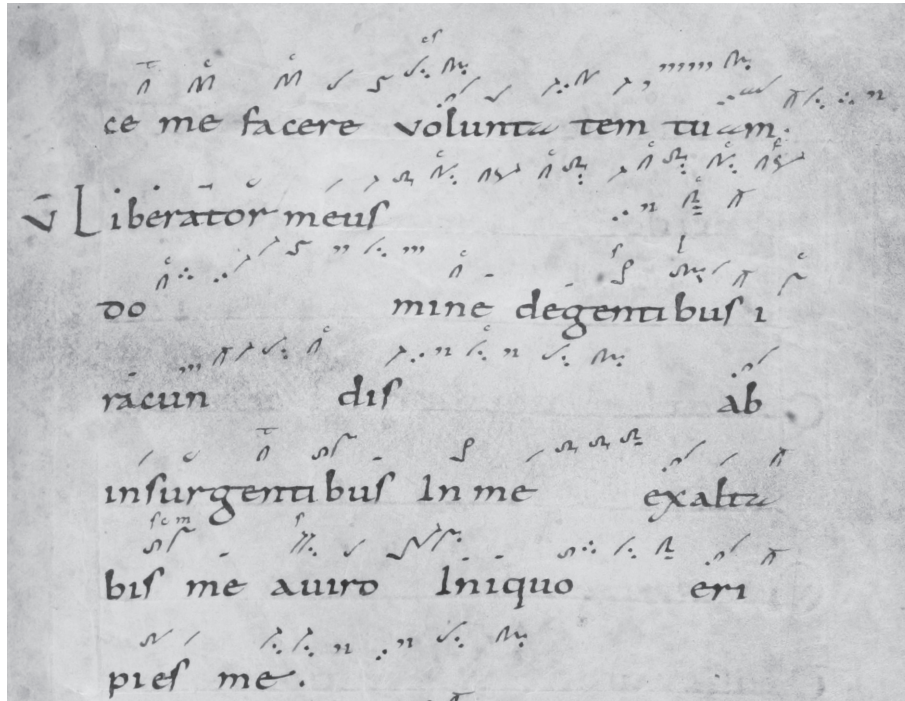 ce me facere volunta tem tuam.
V̄ Liberator meus
do mine degentibus i
racun dis ab
insurgentibus In me exalta
bis me aviro Iniquo eri
pies me.